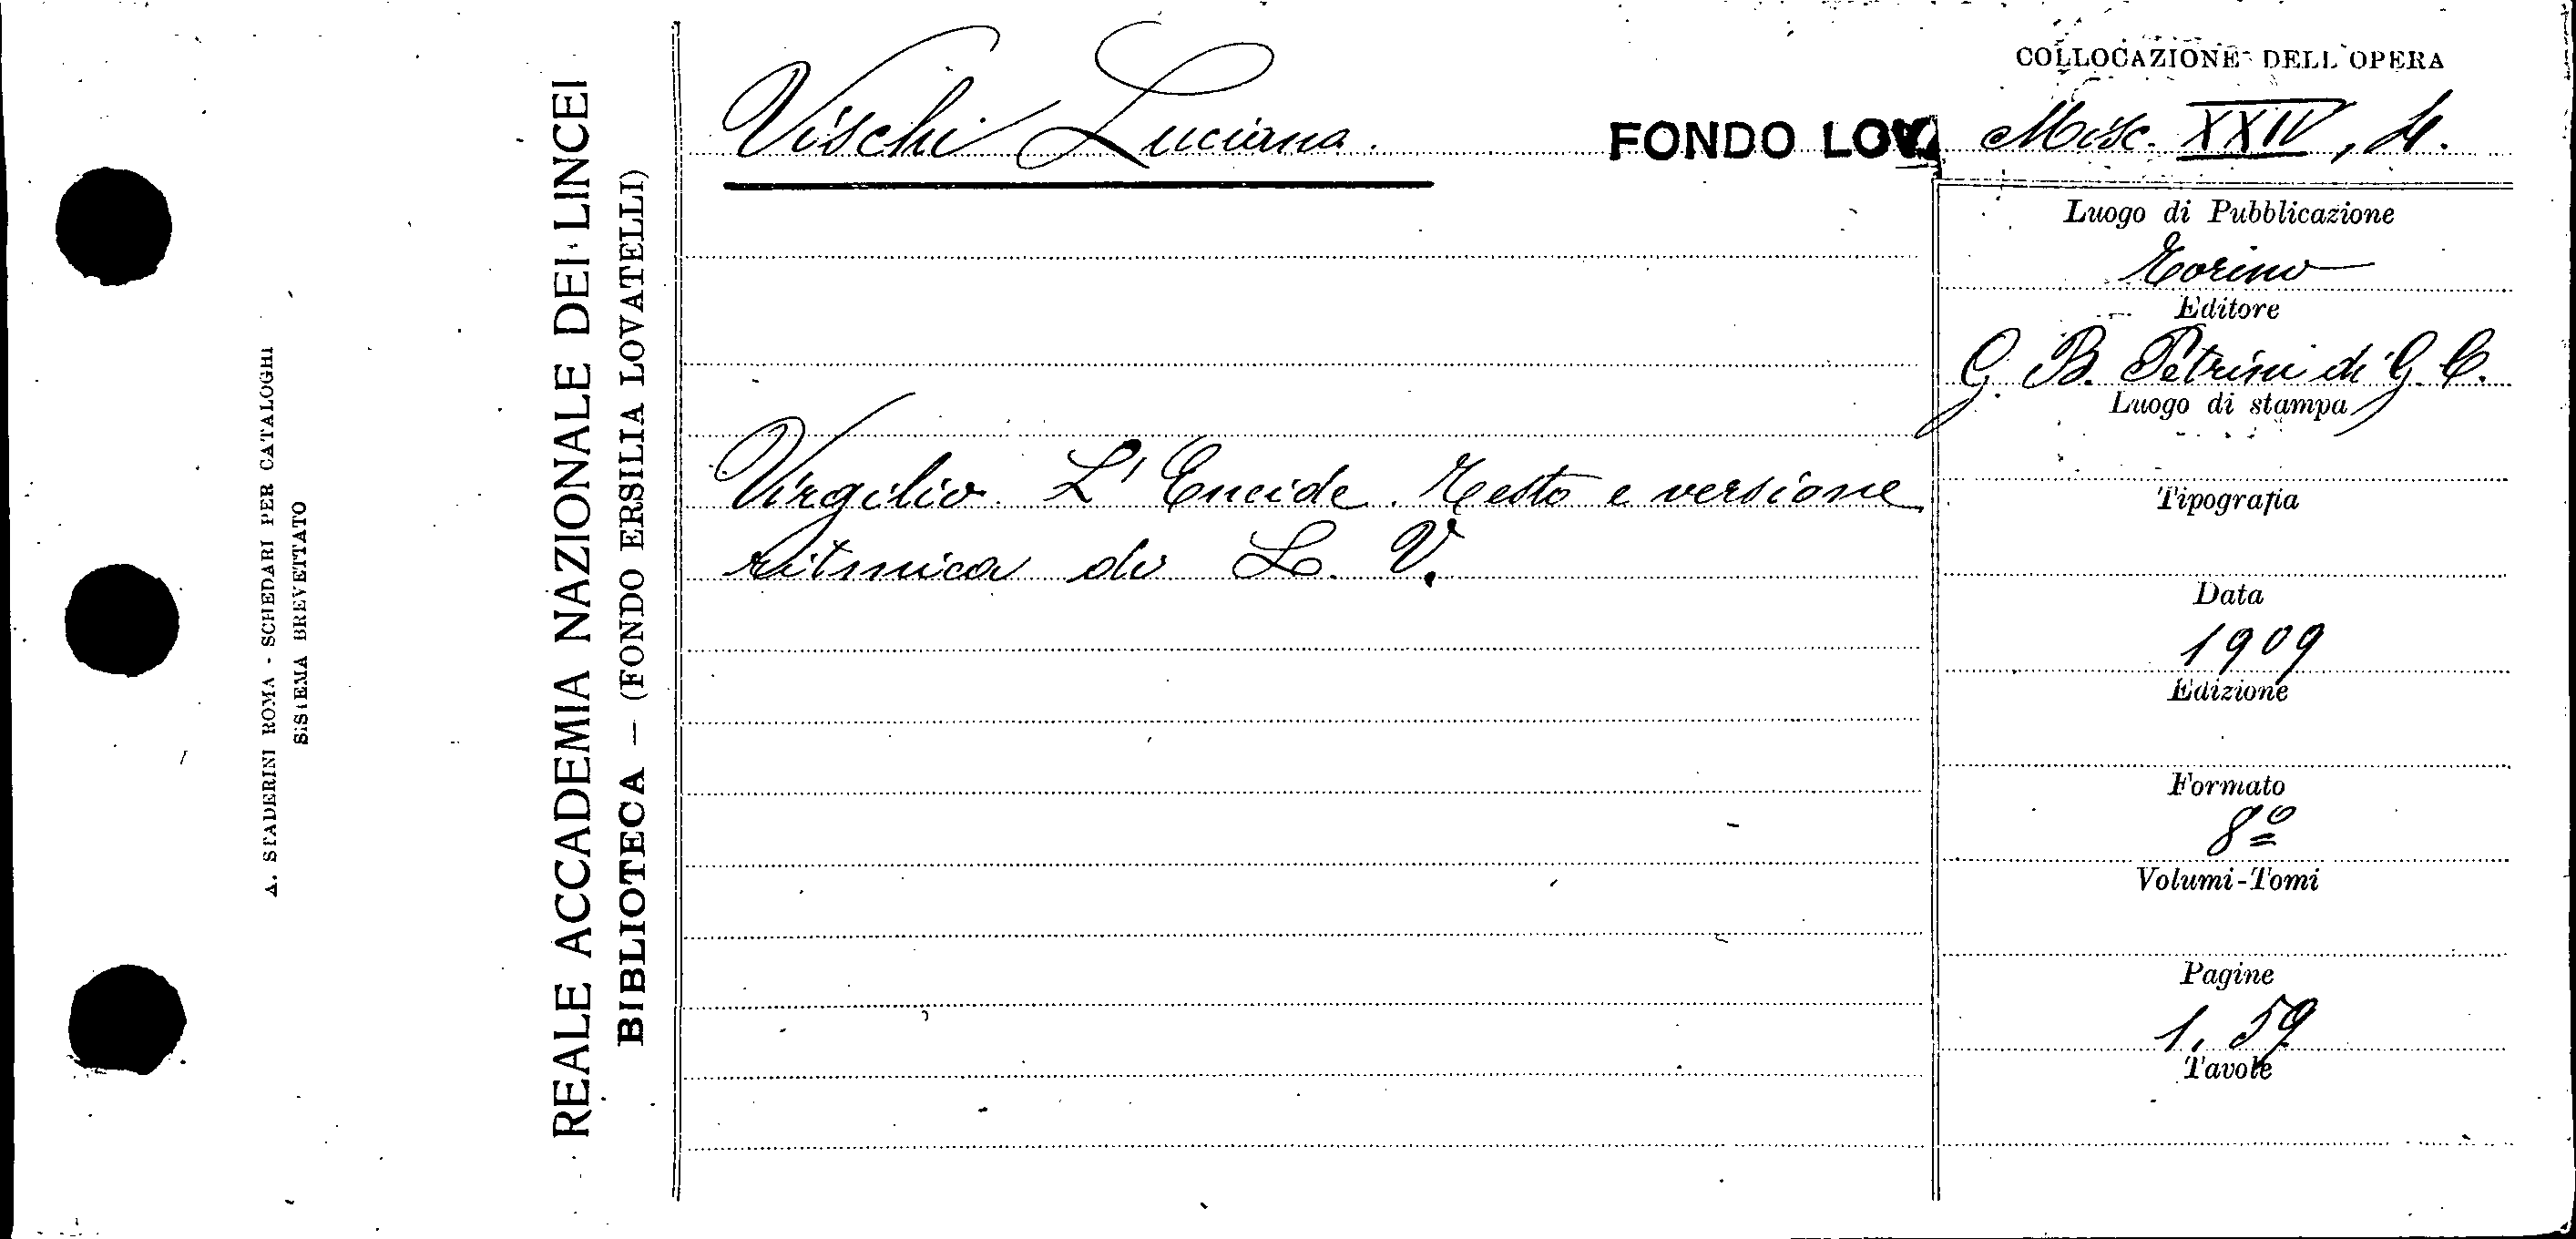 A. STADERINI ROMA - SCHEDARI PER CATALOGHI
SISTEMA BREVETTATO
REALE ACCADEMIA NAZIONALE DEI LINCEI
BIBLIOTECA — (FONDO ERSILIA LOVATELLI)
Vischi Luciana.
FONDO LOV.
Virgilio. L'Eneide. Testo e versione
ritmica di L. V.
COLLOCAZIONE DELL'OPERA
Misc. XXIV, 4.
Luogo di Pubblicazione
Torino
Editore
G. B. Petrini di G. C.
Luogo di stampa
Tipografia
Data
1909
Edizione
Formato
8º
Volumi-Tomi
Pagine
1, 59
Tavole